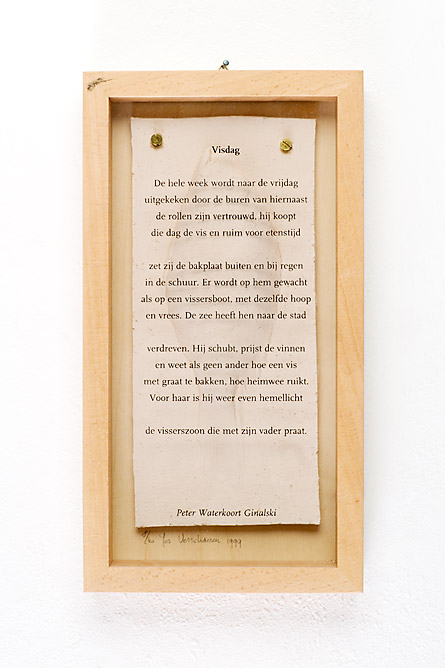 Visdag
De hele week wordt naar de vrijdag
uitgekeken door de buren van hiernaast
de rollen zijn vertrouwd, hij koopt
die dag de vis en ruim voor etenstijd
zet zij de bakplaat buiten en bij regen
in de schuur. Er wordt op hem gewacht
als op een vissersboot, met dezelfde hoop
en vrees. De zee heeft hen naar de stad
verdreven. Hij schubt, prijst de vinnen
en weet als geen ander hoe een vis
met graat te bakken, hoe heimwee ruikt.
Voor haar is hij weer even hemellicht
de visserszoon die met zijn vader praat.
Peter Waterkoort Ginalski
1999